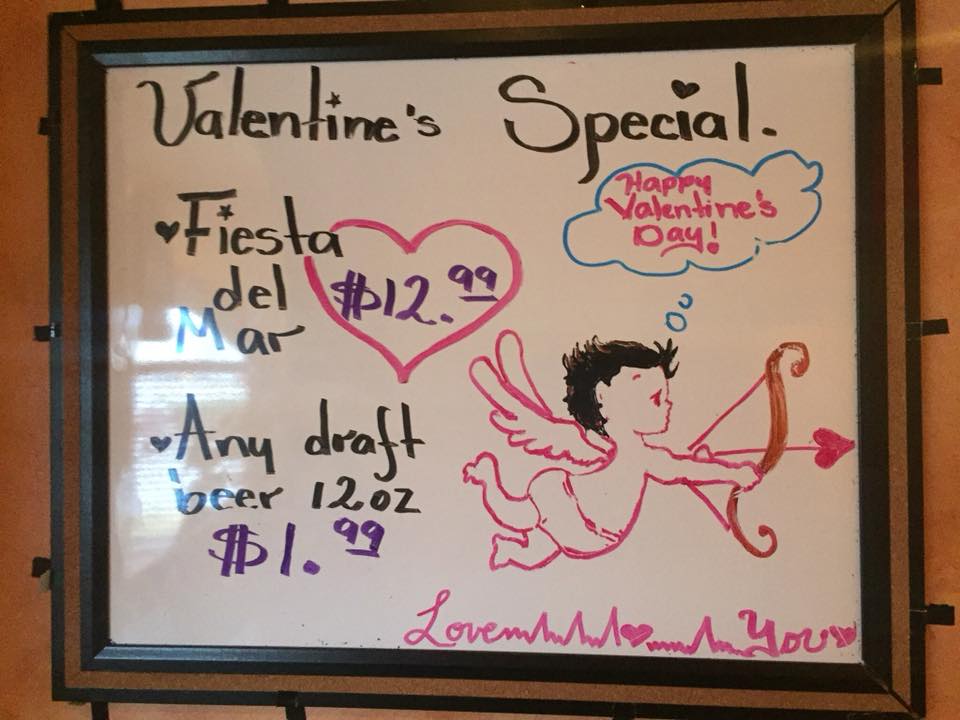 Valentine's Special.
Happy
Valentine's
Day!
• Fiesta
del
Mar
$12.99
• Any draft
beer 12oz
$1.99
Love You